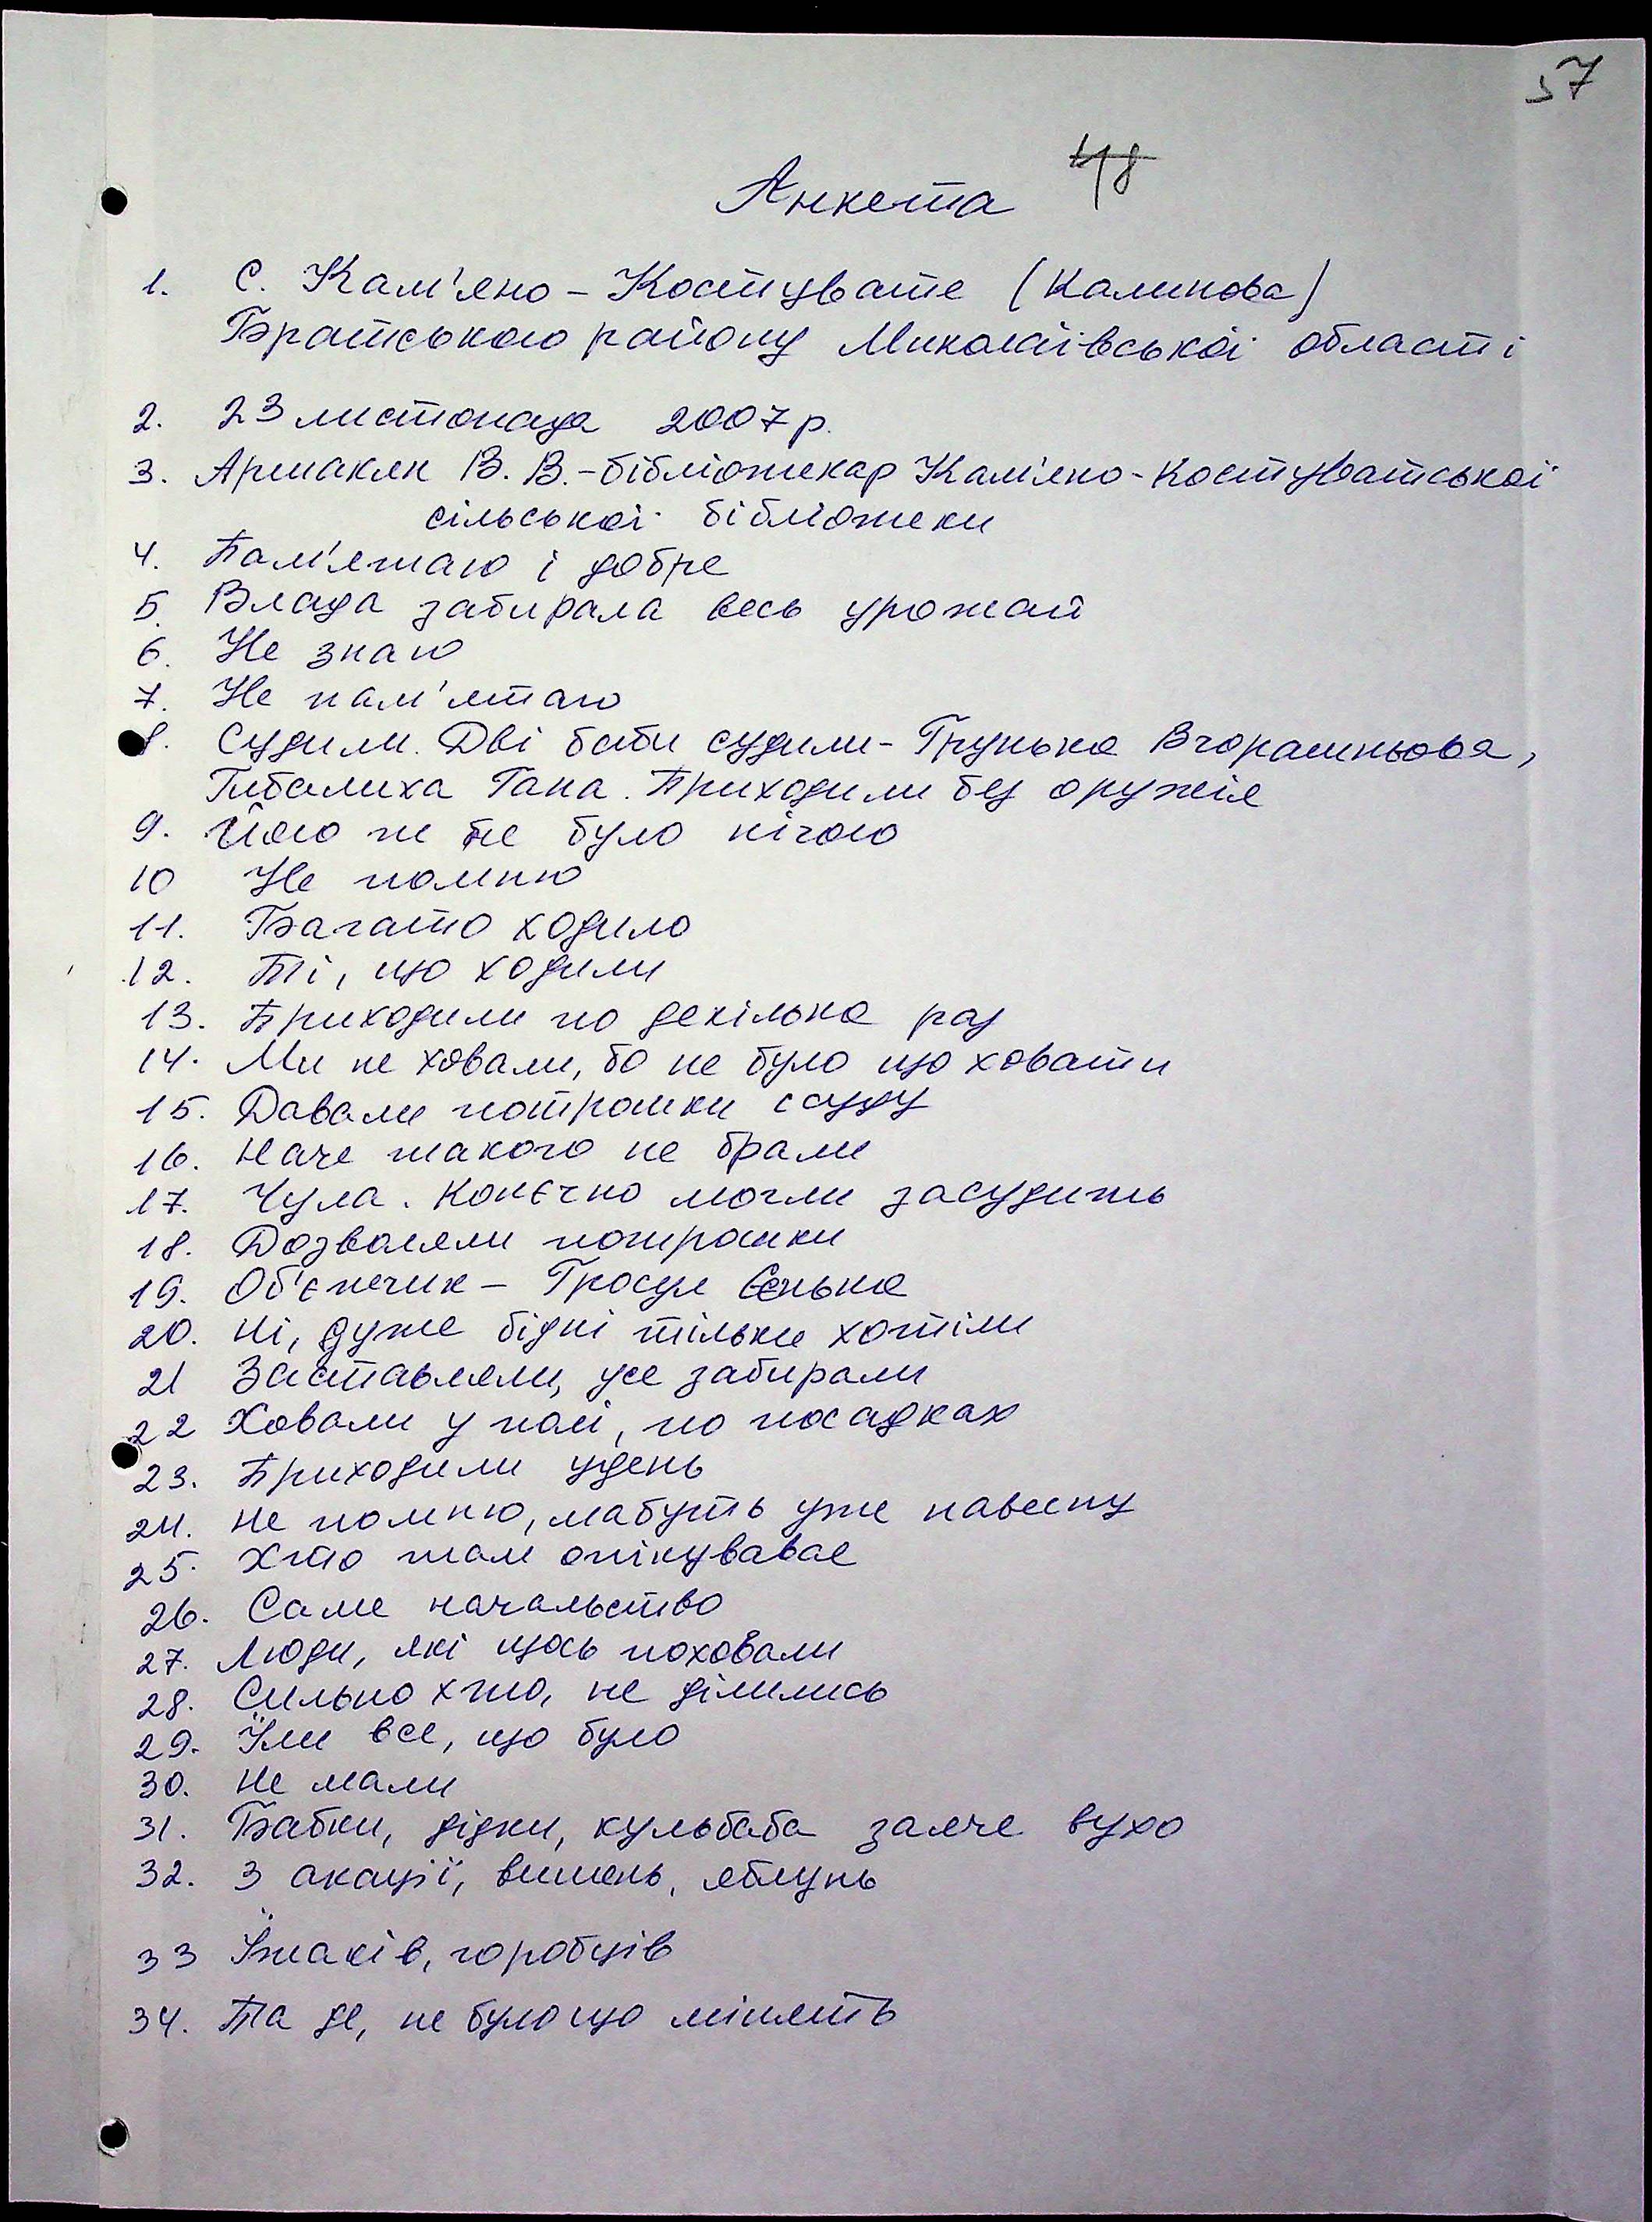 57
48
Анкета
1. С. Кам'яно - Костувате (Калинова)
Братського району Миколаївської області
2. 23 листопада 2007 р.
3. Армакян В. В. - бібліотекар Кам'яно-Костуватської
сільської бібліотеки
4. Пам'ятаю і добре
5. Влада забирала весь урожай
6. Не знаю
7. Не пам'ятаю
8. Судили. Дві баби судили - Грунька Вчорашньова,
Гибалиха Гана. Приходили без оружія
9. Його ж не було нічого
10 Не помню
11. Багато ходило
12. Ті, що ходили
13. Приходили по декілька раз
14. Ми не ховали, бо не було що ховати
15. Давали потрошки саду
16. Наче такого не брали
17. Чула. Конєчно могли засудить
18. Дозволяли потрошки
19. Об'єжчик - Гросул Сенька
20. Ні, дуже бідні тільки хотіли
21 Заставляли, усе забирали
22 Ховали у полі, по посадках
23. Приходили удень
24. Не помню, мабуть уже навесну
25. Хто там опікувався
26. Саме начальство
27. Люди, які щось поховали
28. Сильно хто, не ділились
29. Їли все, що було
30. Не мали
31. Бабки, дідки, кульбаба заяче вухо
32. З акації, вишень, яблунь
33 Їжаків, горобців
34. Та де, не було що мінять